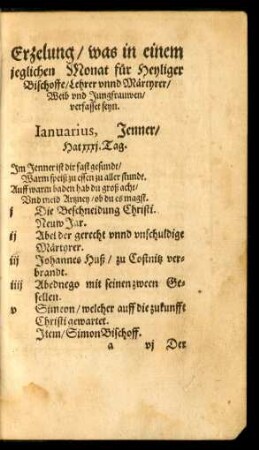 Erzelung / was in einem
jeglichen Monat für Heyliger
Bischoffe / Lehrer vnnd Märtyrer /
Weib vnd Jungfrauwen /
verfasset seyn.
Ianuarius, Jenner /
Hat xxxj. Tag.
Im Jenner ist dir fast gesundt /
Warm speiß zu essen zu aller stundt.
Auff warm baden hab du groß acht /
Vnd meid Artzney / ob du es magst.
j Die Beschneidung Christi.
Neuw Jar.
ij Abel der gerecht vnnd vnschuldige
Märtorer.
iij Johannes Huß / zu Costnitz ver-
brandt.
iiij Abednego mit seinen zween Ge-
sellen.
v Simeon / welcher auff die zukunfft
Christi gewartet.
Item / Simon Bischoff.
a vj Der